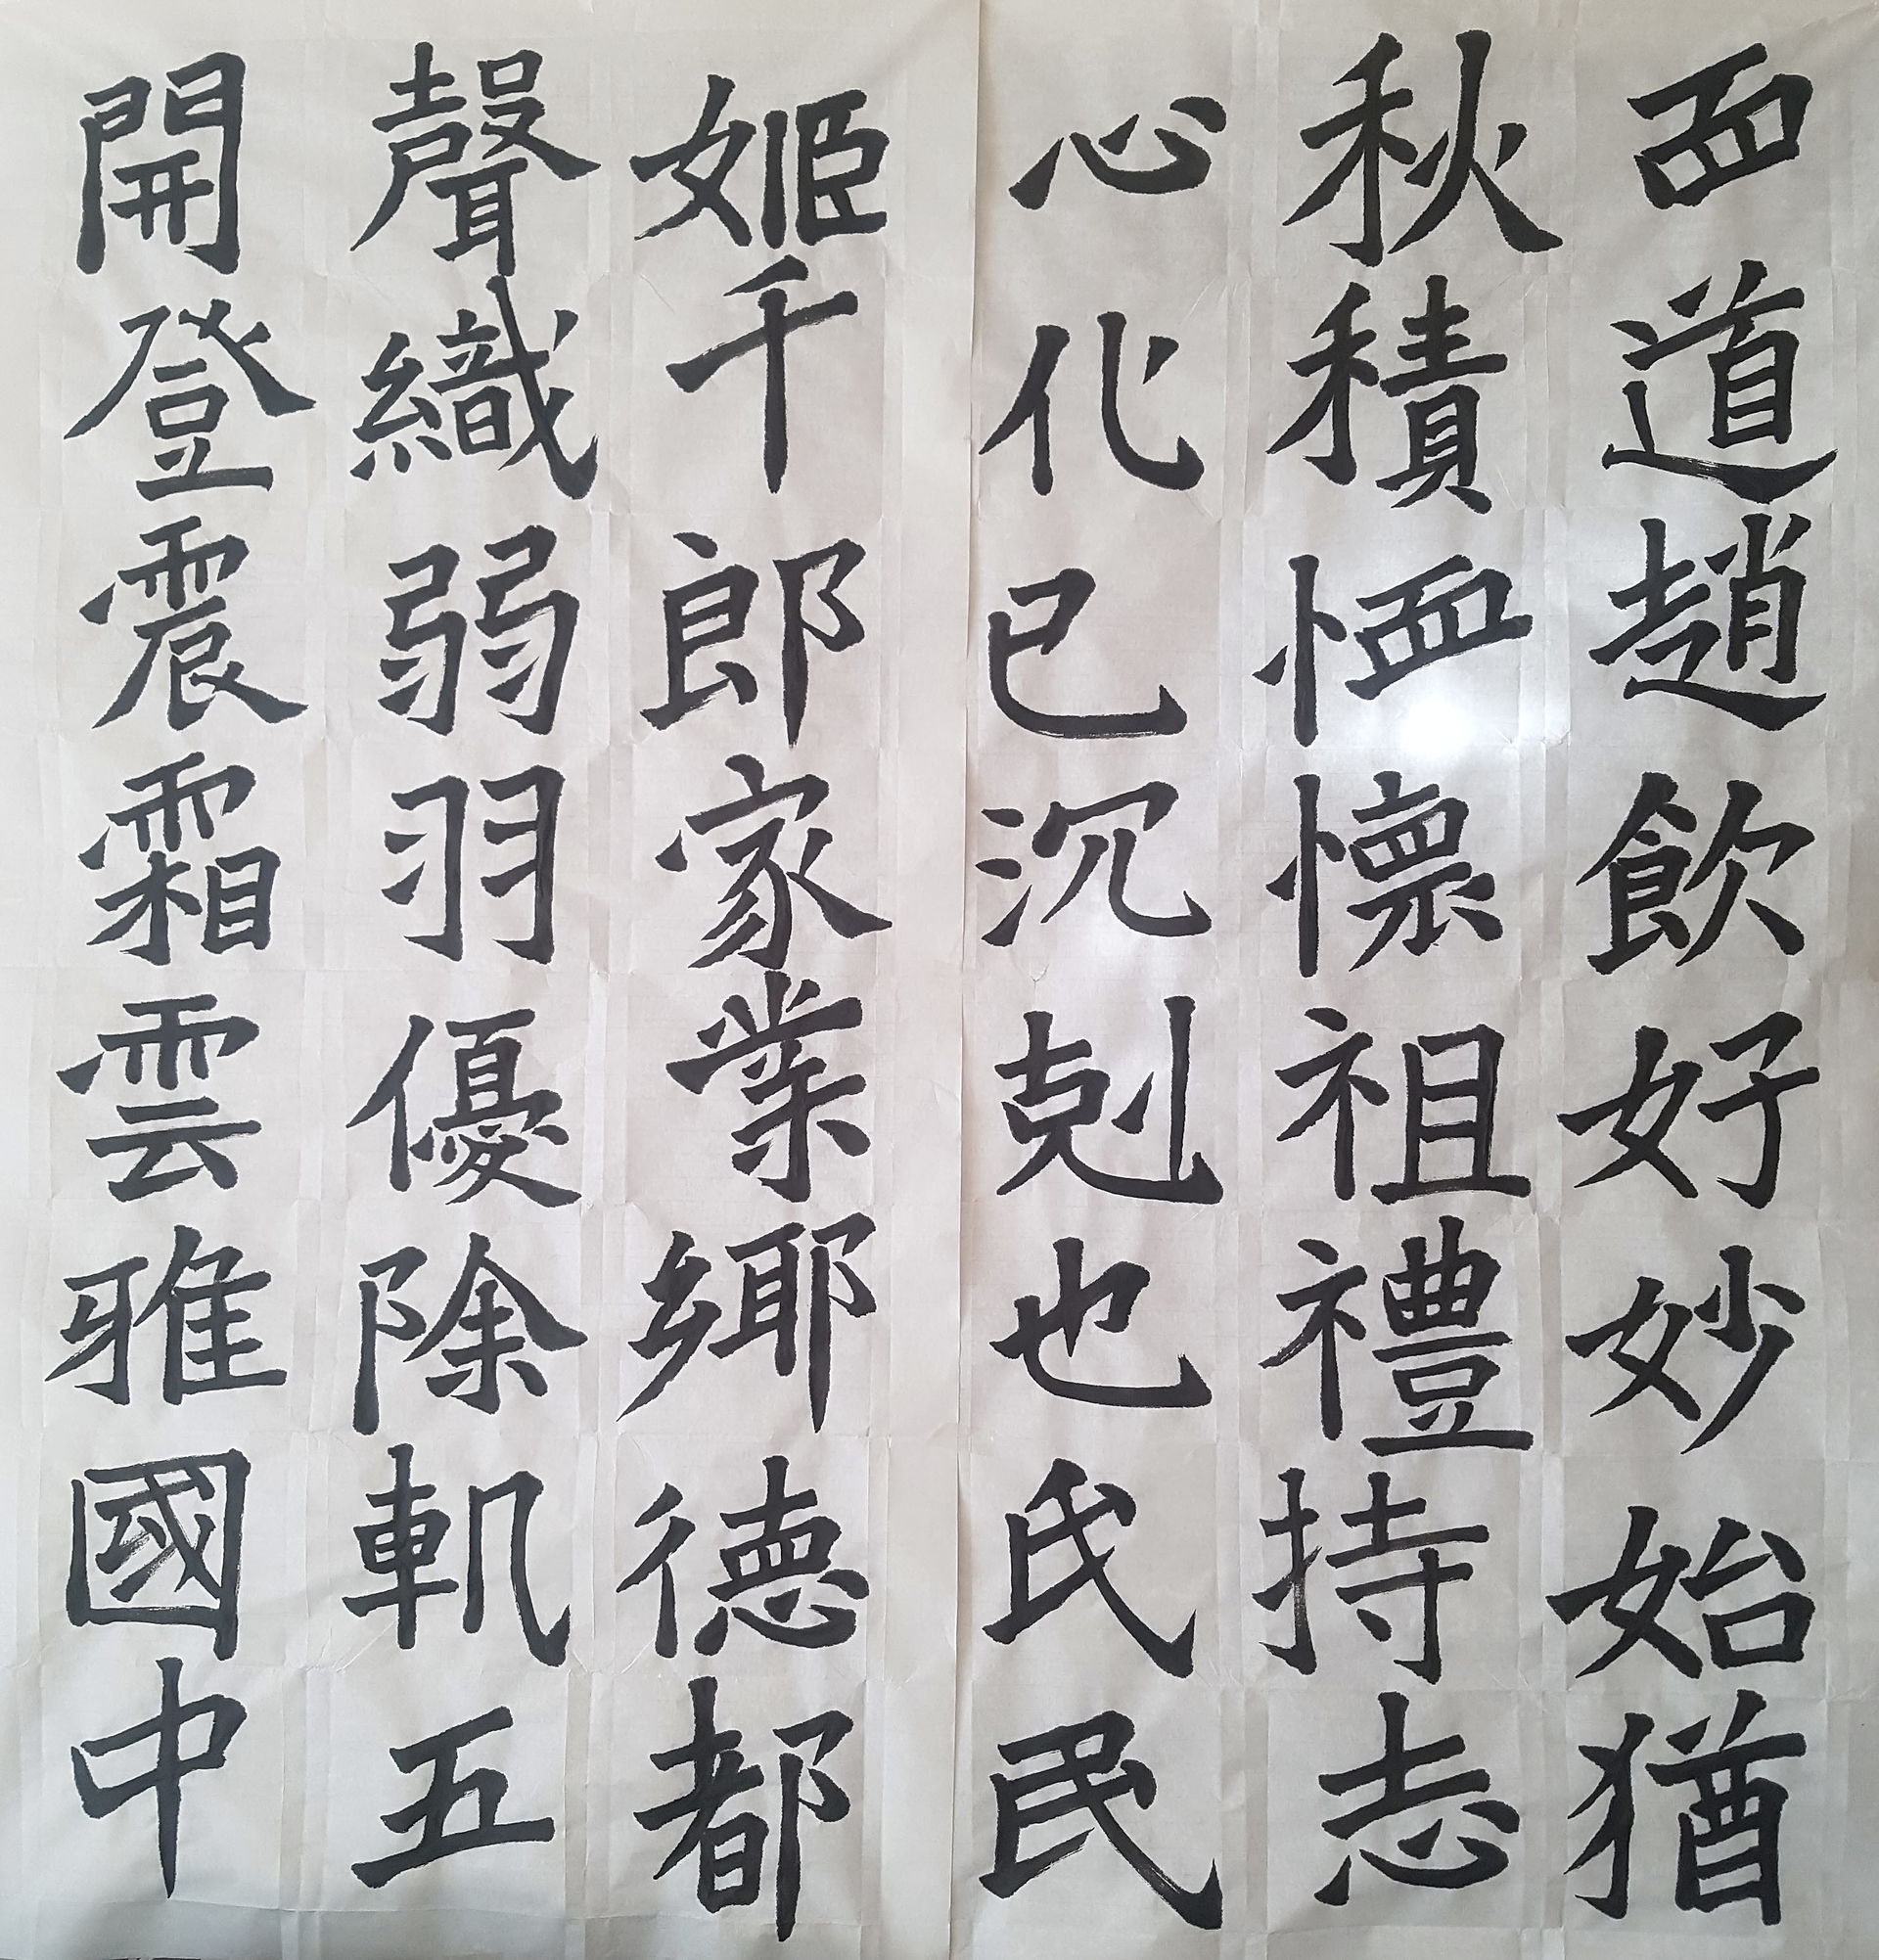 道趙飲好妙始猶
秋積懷祖禮持志
心化已沉剋也氏民
姬千郎家業鄉德都
聲織弱羽優除軌五
開登震霜雲雅國中